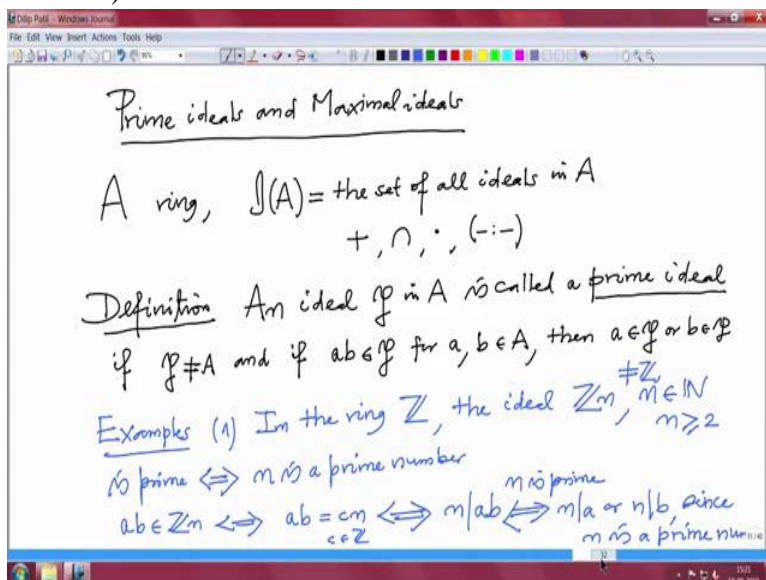 Dilip Patil - Windows Journal
File Edit View Insert Actions Tools Help
Prime ideals and Maximal ideals
A ring, 𝓘(A) = the set of all ideals in A
+, ∩, ·, (-:-)
Definition An ideal 𝔭 in A is called a prime ideal
if 𝔭 ≠ A and if ab ∈ 𝔭 for a, b ∈ A, then a ∈ 𝔭 or b ∈ 𝔭
≠ ℤ
Examples (1) In the ring ℤ, the ideal ℤn, n ∈ ℕ
n ≥ 2
is prime ⇔ n is a prime number
n is prime
ab ∈ ℤn ⇔ ab = cn ⇔ n|ab ⇔ n|a or n|b, since
c ∈ ℤ
n is a prime num
15:21